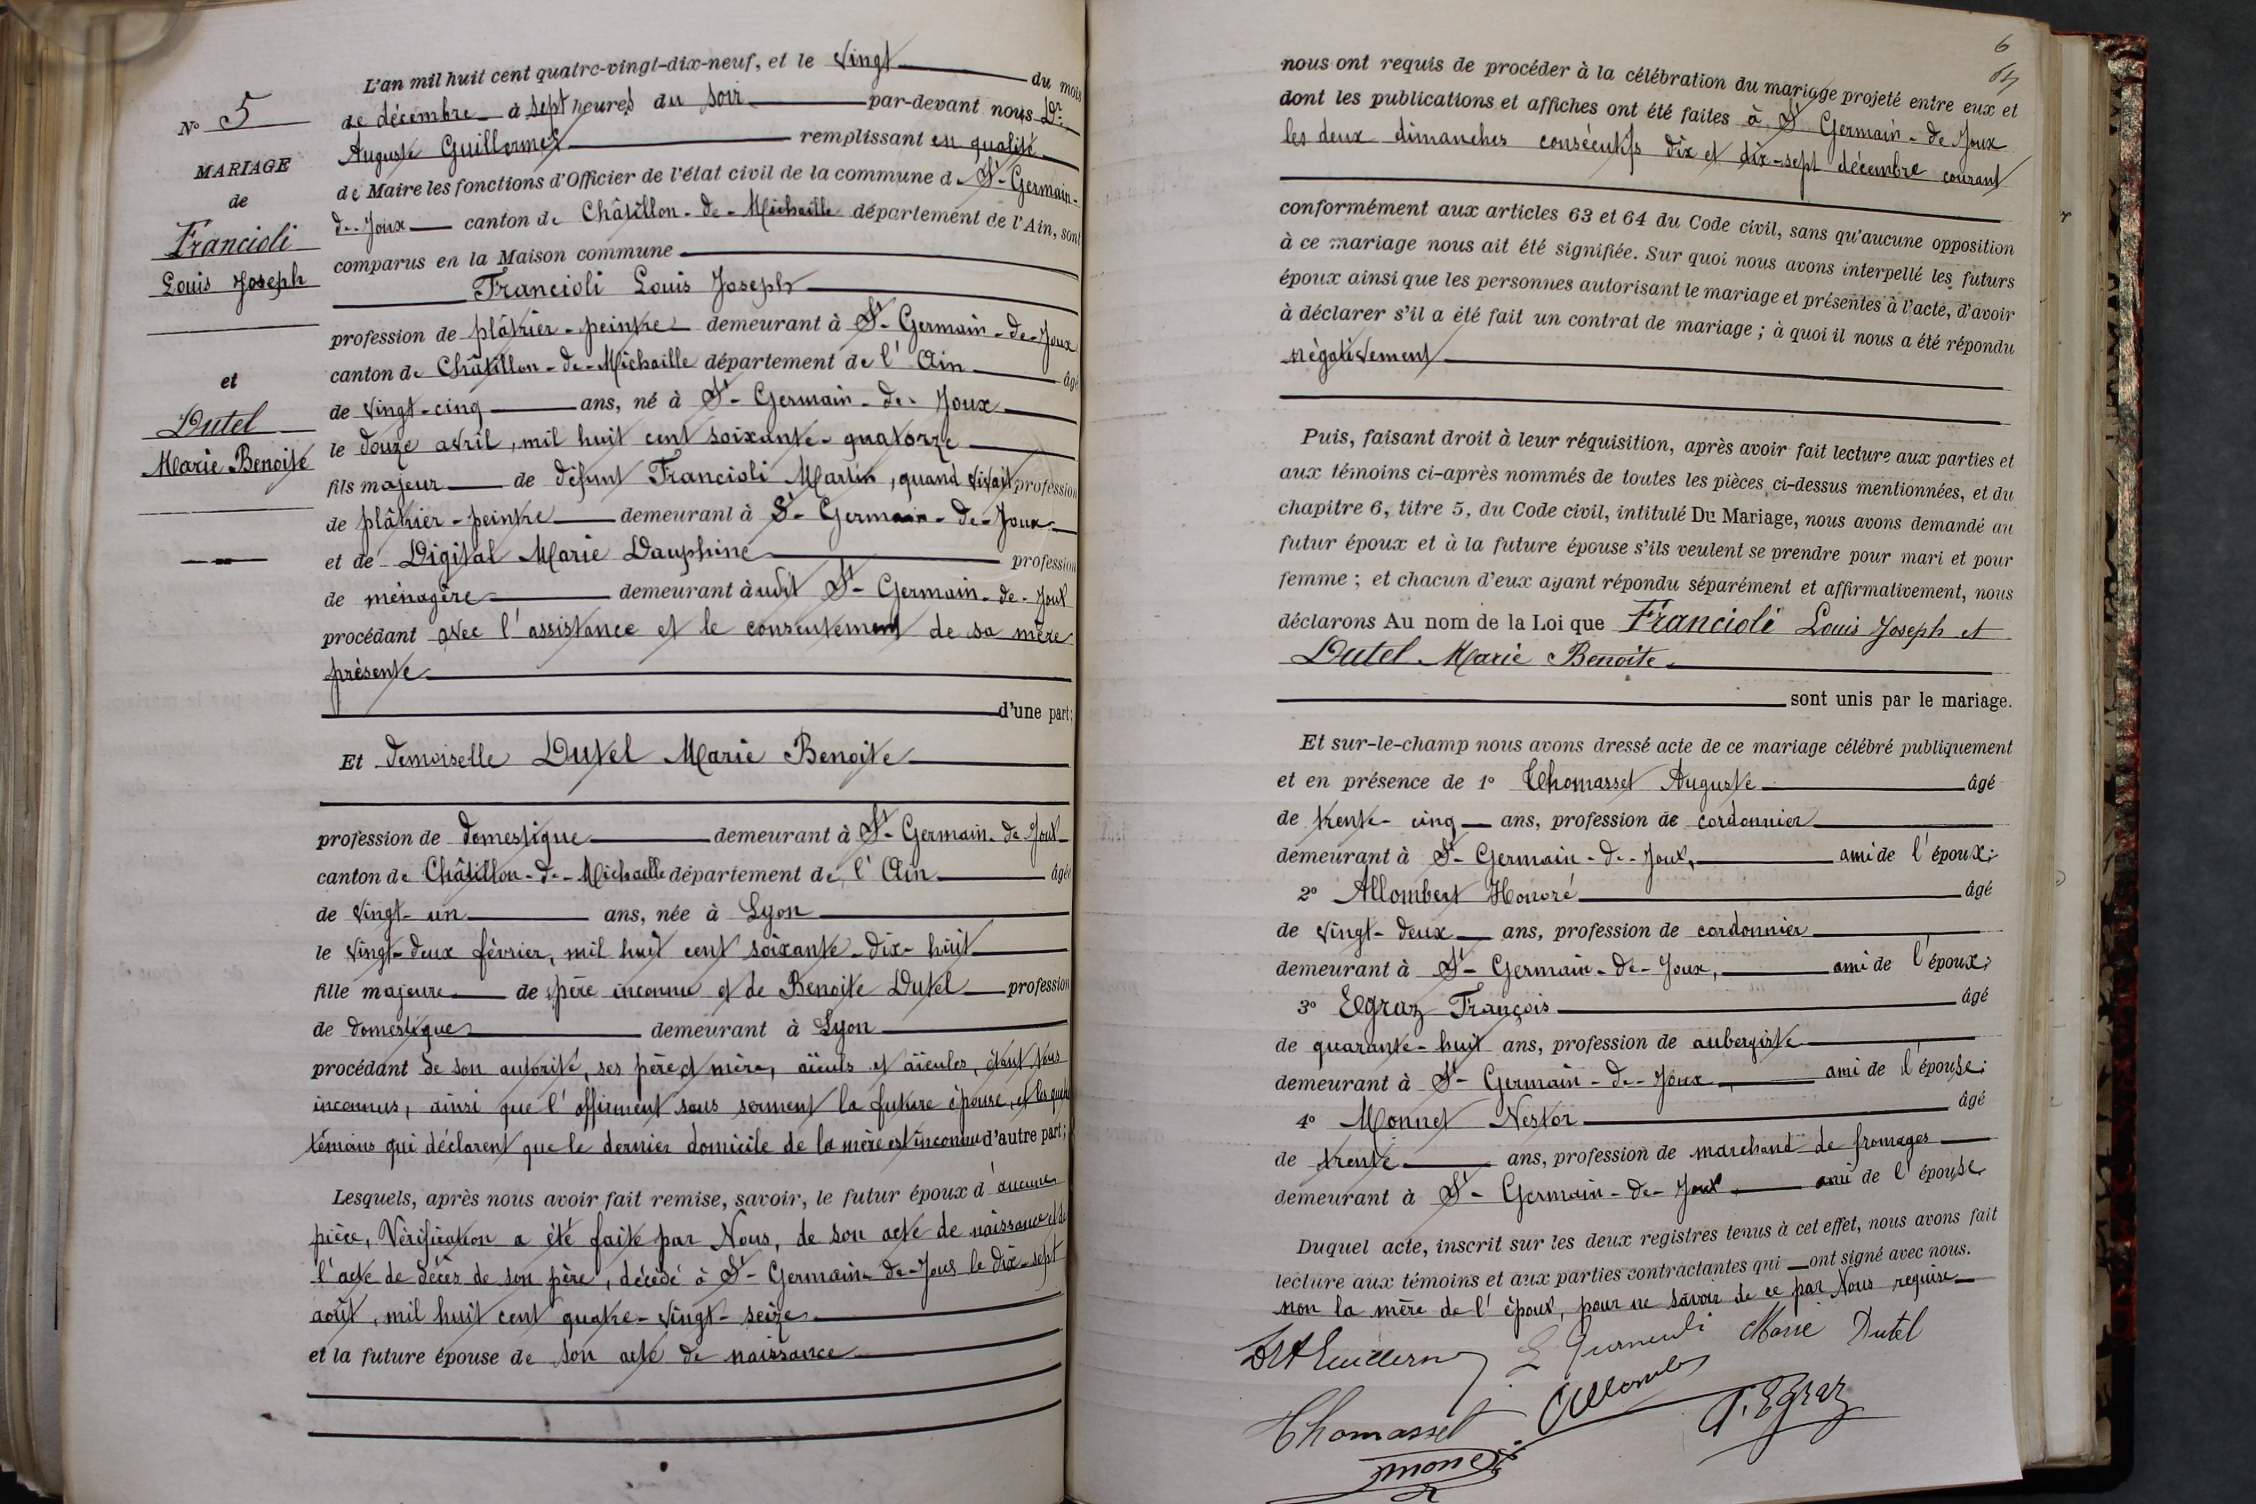 L'an mil huit cent quatre-vingt-dix-neuf, et le vingt du mois
de décembre à sept heures du soir par-devant nous Dr
Auguste Guillermet remplissant en qualité
de Maire les fonctions d'Officier de l'état civil de la commune d St-Germain-
de-Joux canton de Châtillon-de-Michaille département de l'Ain, sont
comparus en la Maison commune
Francioli Louis Joseph
profession de plâtrier-peintre demeurant à St-Germain-de-Joux
canton de Châtillon-de-Michaille département de l'Ain âgé
de vingt-cinq ans, né à St-Germain-de-Joux
le douze avril, mil huit cent soixante-quatorze
fils majeur de défunt Francioli Martin, quand vivait profession
de plâtrier-peintre demeurant à St-Germain-de-Joux
et de Digital Marie Dauphine profession
de ménagère demeurant à udit St-Germain-de-Joux
procédant avec l'assistance et le consentement de sa mère
présente
d'une part;
Et demoiselle Dutel Marie Benoite
profession de domestique demeurant à St-Germain-de-Joux
canton de Châtillon-de-Michaille département de l'Ain âgée
de vingt-un ans, née à Lyon
le vingt-deux février, mil huit cent soixante-dix-huit
fille majeure de père inconnu et de Benoite Dutel profession
de domestique demeurant à Lyon
procédant de son autorité, ses père et mère, aïeuls et aïeules, étant tous
inconnus, ainsi que l'affirment sous serment la future épouse, et les quatre
témoins qui déclarent que le dernier domicile de la mère est inconnu d'autre part;
Lesquels, après nous avoir fait remise, savoir, le futur époux d'aucune
pièce, Vérification a été faite par Nous, de son acte de naissance et de
l'acte de décès de son père, décédé à St-Germain-de-Joux le dix-sept
août, mil huit cent quatre-vingt-seize
et la future épouse de son acte de naissance
No 5
MARIAGE
de
Francioli
Louis Joseph
et
Dutel
Marie Benoite
6
nous ont requis de procéder à la célébration du mariage projeté entre eux et
dont les publications et affiches ont été faites à St Germain-de-Joux
les deux dimanches consécutifs dix et dix-sept décembre courant
conformément aux articles 63 et 64 du Code civil, sans qu'aucune opposition
à ce mariage nous ait été signifiée. Sur quoi nous avons interpellé les futurs
époux ainsi que les personnes autorisant le mariage et présentes à l'acte, d'avoir
à déclarer s'il a été fait un contrat de mariage; à quoi il nous a été répondu
négativement
Puis, faisant droit à leur réquisition, après avoir fait lecture aux parties et
aux témoins ci-après nommés de toutes les pièces ci-dessus mentionnées, et du
chapitre 6, titre 5, du Code civil, intitulé Du Mariage, nous avons demandé au
futur époux et à la future épouse s'ils veulent se prendre pour mari et pour
femme; et chacun d'eux ayant répondu séparément et affirmativement, nous
déclarons Au nom de la Loi que Francioli Louis Joseph et
Dutel Marie Benoite
sont unis par le mariage.
Et sur-le-champ nous avons dressé acte de ce mariage célébré publiquement
et en présence de 1° Thomasset Auguste âgé
de trente-cinq ans, profession de cordonnier
demeurant à St-Germain-de-Joux, ami de l'époux;
2° Allombert Honoré âgé
de vingt-deux ans, profession de cordonnier
demeurant à St-Germain-de-Joux, ami de l'époux;
3° Egraz François âgé
de quarante-huit ans, profession de aubergiste
demeurant à St-Germain-de-Joux, ami de l'épouse;
4° Monnet Nestor âgé
de trente ans, profession de marchand de fromages
demeurant à St-Germain-de-Joux, ami de l'épouse
Duquel acte, inscrit sur les deux registres tenus à cet effet, nous avons fait
lecture aux témoins et aux parties contractantes qui ont signé avec nous.
non la mère de l'époux, pour ne savoir de ce par Nous requise
Marie Dutel
Thomasset
F. Egraz